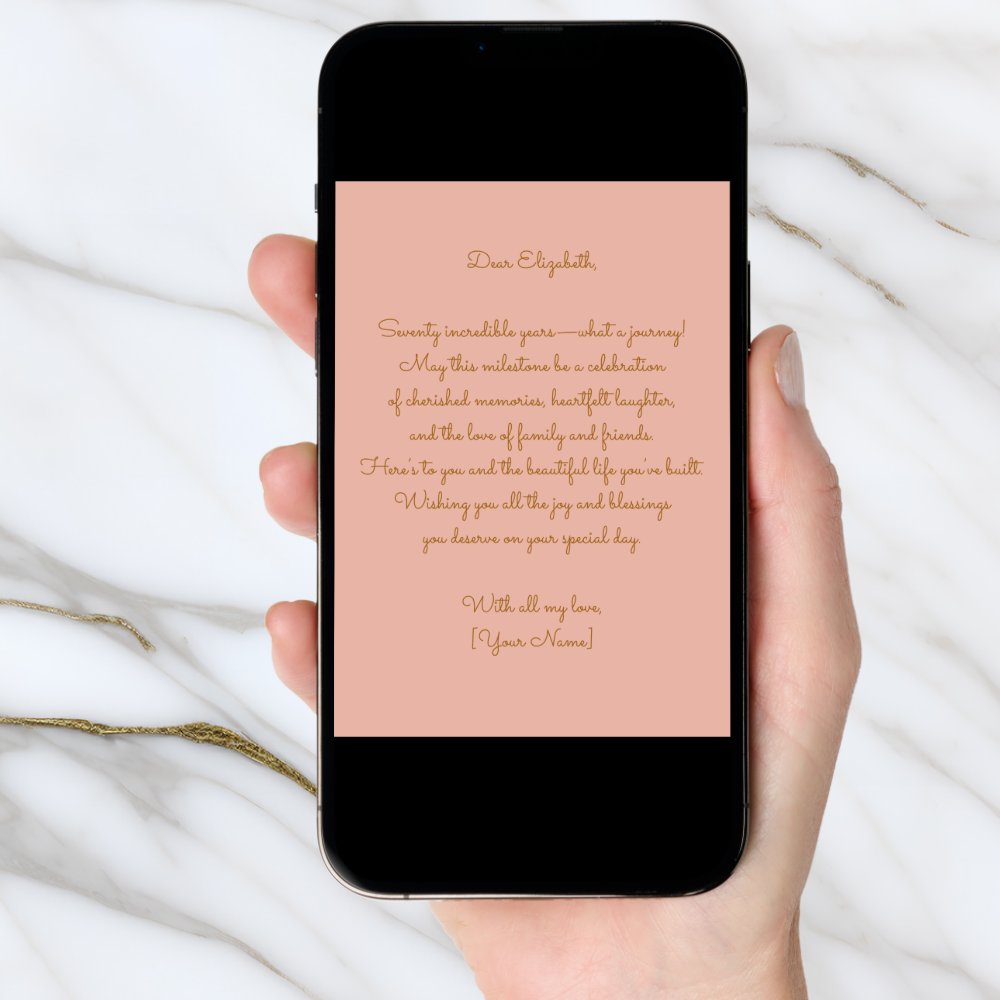 Dear Elizabeth,
Seventy incredible years—what a journey!
May this milestone be a celebration
of cherished memories, heartfelt laughter,
and the love of family and friends.
Here's to you and the beautiful life you've built.
Wishing you all the joy and blessings
you deserve on your special day.
With all my love,
[Your Name]